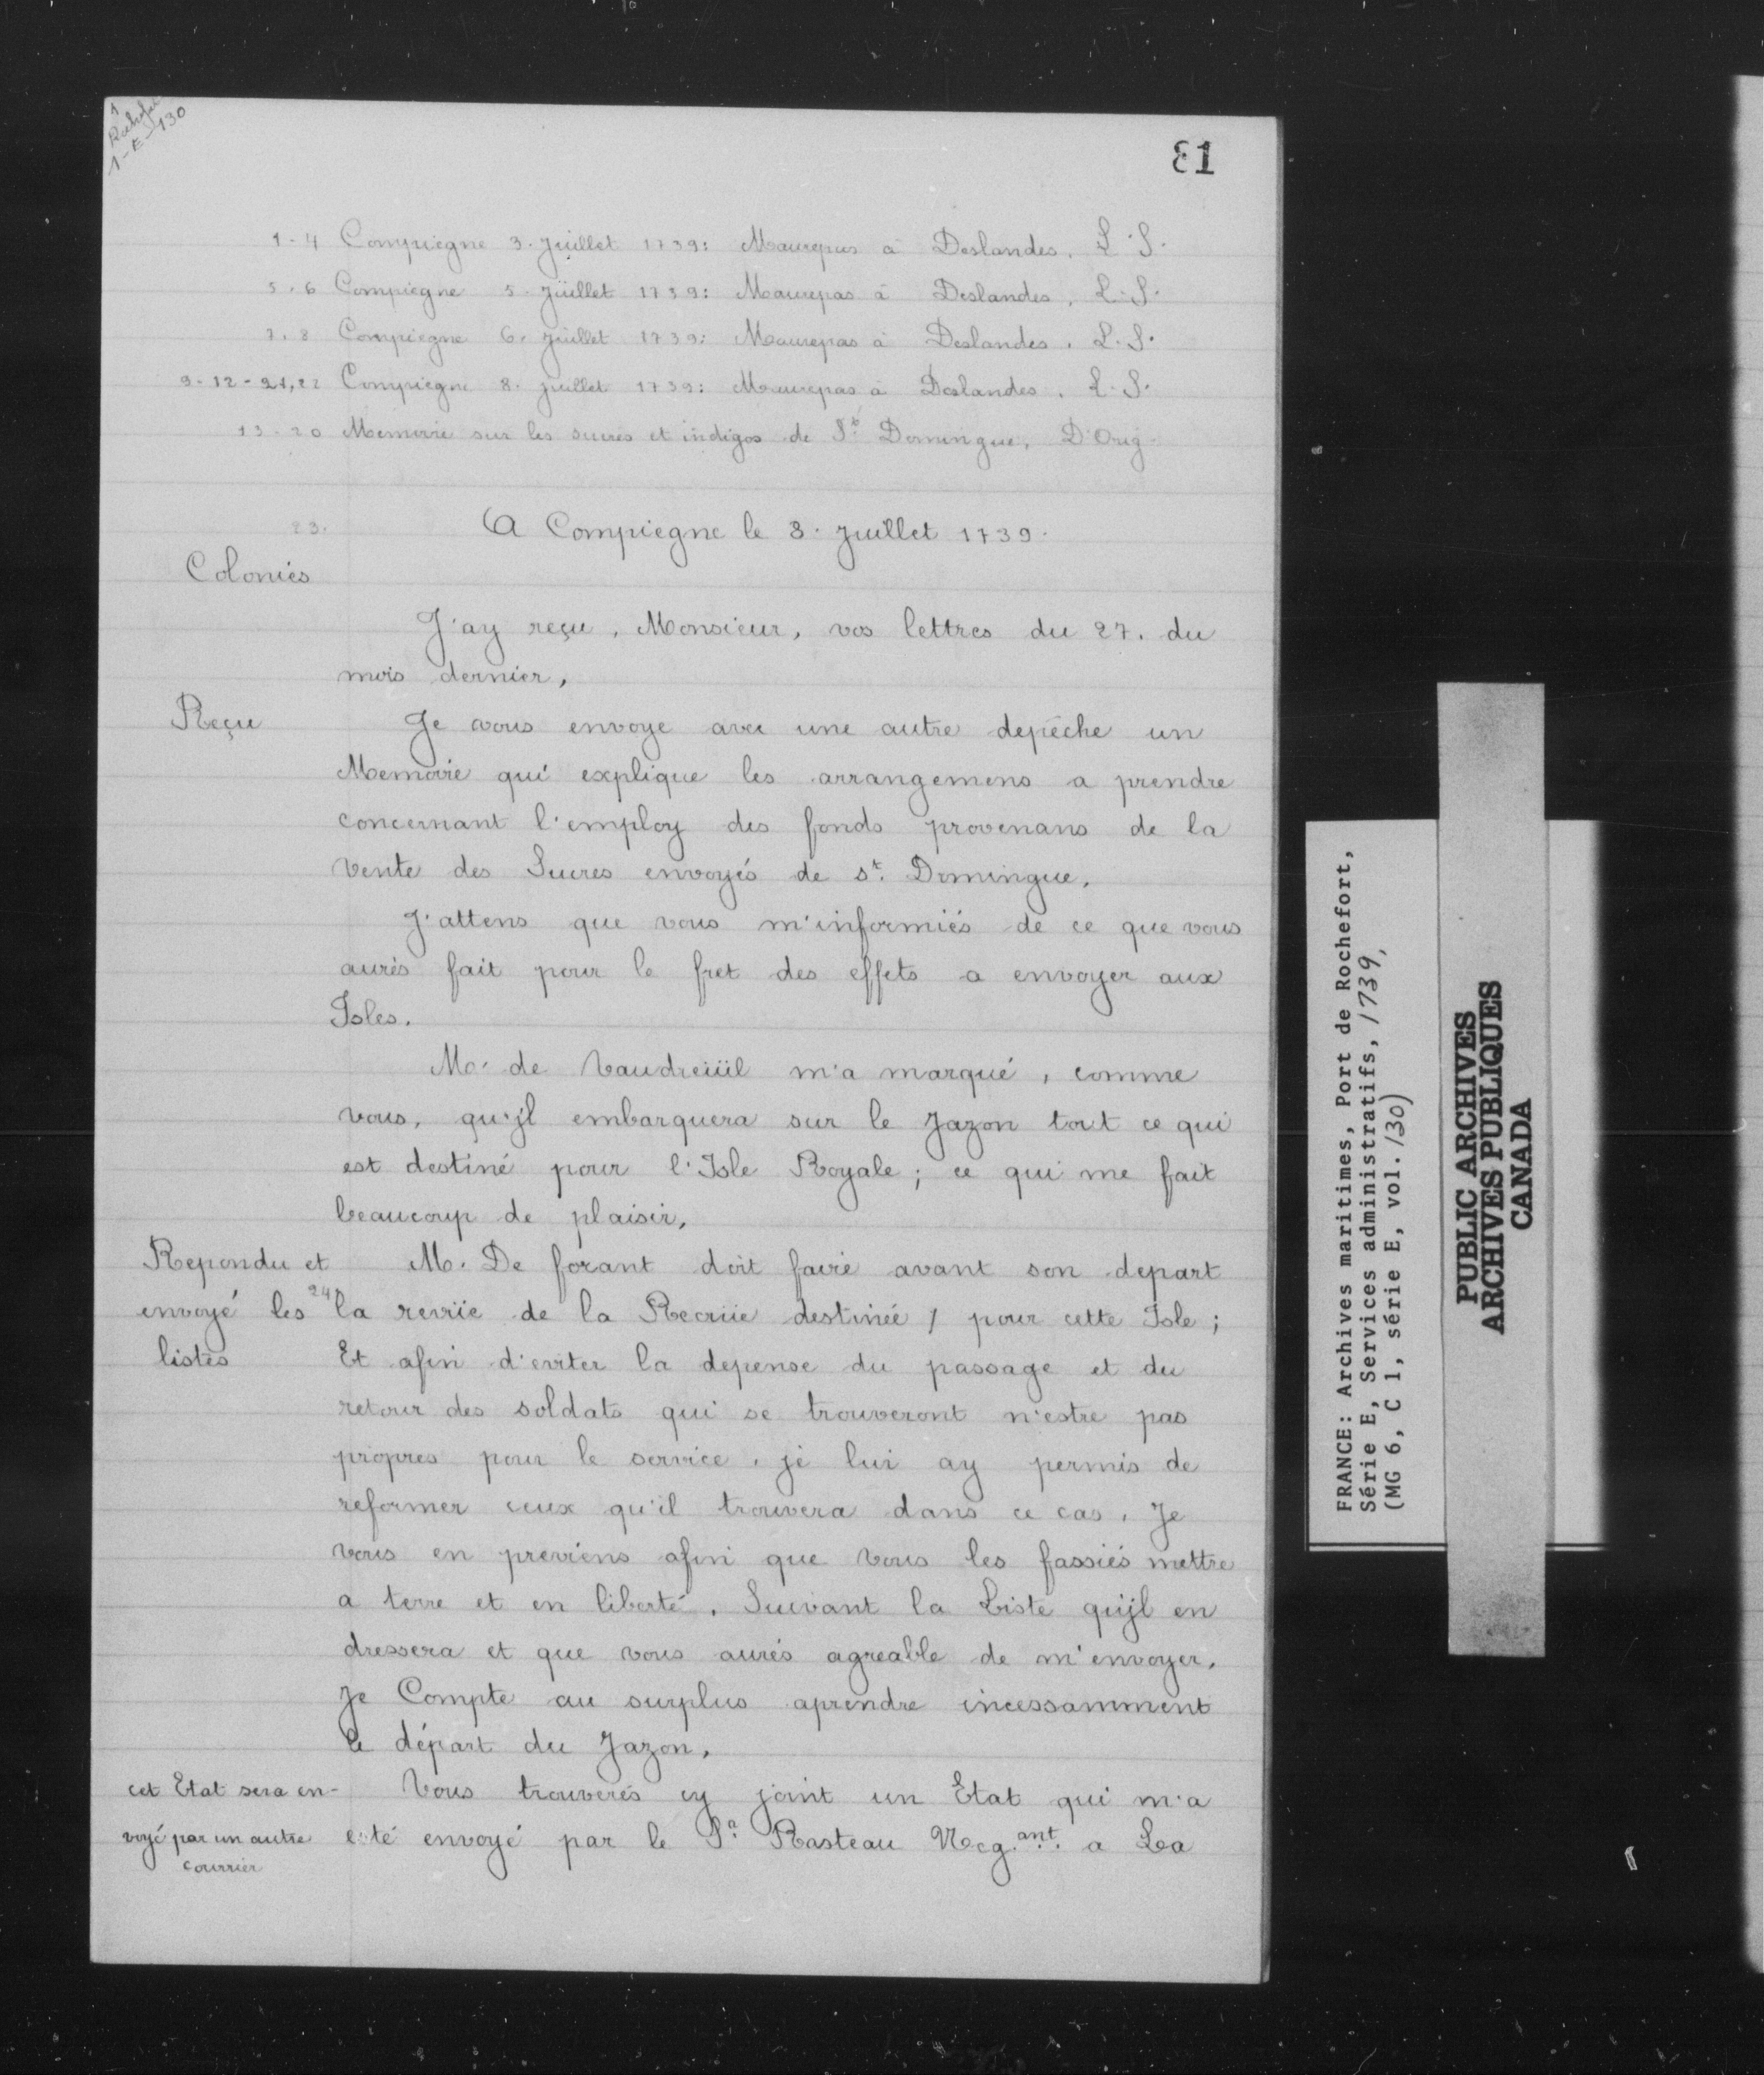 1
Rochefort
1-E-130
81
1-4 Compiegne 3. Juillet 1739: Maurepas à Deslandes. L.S.
5.6 Compiegne 5. Juillet 1739: Maurepas à Deslandes. L.S.
7.8 Compiegne 6. Juillet 1739: Maurepas à Deslandes. L.S.
9-12-21,22 Compiegne 8. Juillet 1739: Maurepas à Deslandes. L.S.
13-20 Memoire sur les sucres et indigos de St. Domingue, D'Orig-
23. A Compiegne le 8. Juillet 1739.
Colonies
J'ay reçu, Monsieur, vos lettres du 27. du
mois dernier,
Reçu Je vous envoye avec une autre depêche un
Memoire qui explique les arrangemens a prendre
concernant l'employ des fonds provenans de la
vente des Sucres envoyés de St. Domingue.
J'attens que vous m'informiés de ce que vous
aurés fait pour le fret des effets a envoyer aux
Isles.
Mr. de Vaudreüil m'a marqué, comme
vous, qu'jl embarquera sur le Jazon tout ce qui
est destiné pour l'Isle Royale; ce qui me fait
beaucoup de plaisir,
Repondu et M. De forant doit faire avant son depart
envoyé les 24 la revüe de la Recrüe destinée / pour cette Isle;
listes Et afin d'eviter la depense du passage et du
retour des soldats qui se trouveront n'estre pas
propres pour le service, je lui ay permis de
reformer ceux qu'il trouvera dans ce cas. Je
vous en previens afin que vous les fassiés mettre
a terre et en liberté, Suivant la Liste qu'jl en
dressera et que vous aurés agreable de m'envoyer.
Je Compte au surplus aprendre incessamment
le départ du Jazon.
cet Etat sera en- Vous trouverés cy joint un Etat qui m'a
voyé par un autre esté envoyé par le Sr. Rasteau Neg.ant. a La
courrier
FRANCE: Archives maritimes, Port de Rochefort,
Série E, Services administratifs, 1739,
(MG 6, C 1, série E, vol. 130)
PUBLIC ARCHIVES
ARCHIVES PUBLIQUES
CANADA